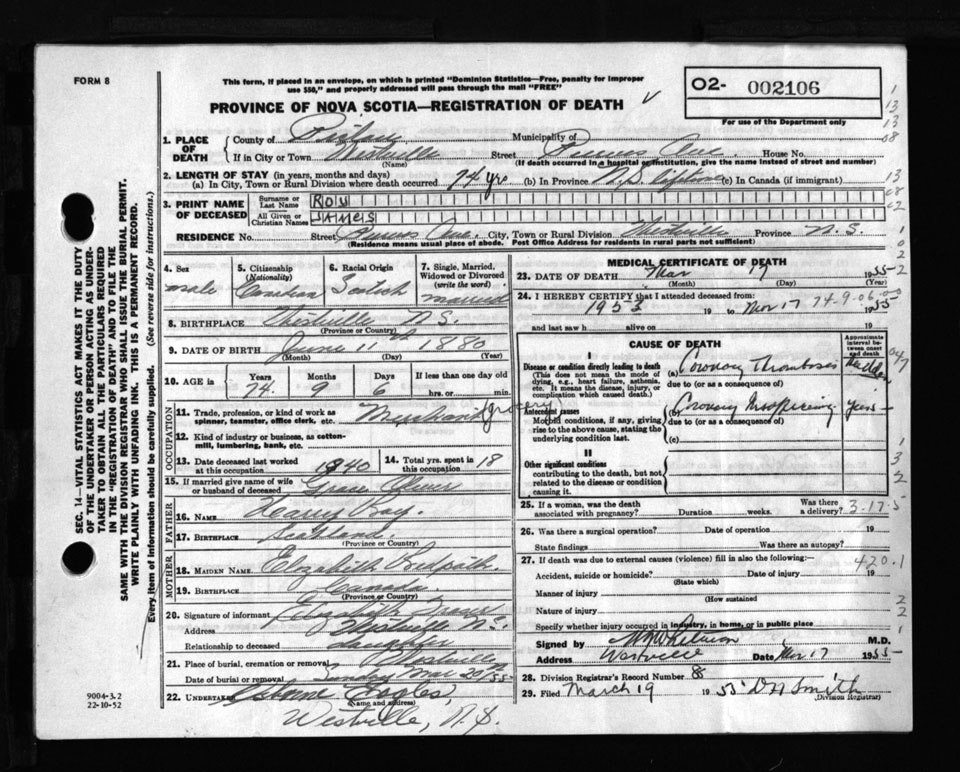 FORM 8
This form, if placed in an envelope, on which is printed "Dominion Statistics—Free, penalty for improper
use $50," and properly addressed will pass through the mail "FREE"
PROVINCE OF NOVA SCOTIA—REGISTRATION OF DEATH
O2- 002106
For use of the Department only
1. PLACE OF DEATH
County of Pictou Municipality of
If in City or Town Westville Street Avenue House No.
(Name) (If death occurred in a hospital or institution, give the name instead of street and number)
2. LENGTH OF STAY (in years, months and days)
(a) In City, Town or Rural Division where death occurred 74 yrs (b) In Province N.S. lifetime (c) In Canada (if immigrant)
3. PRINT NAME OF DECEASED
Surname or Last Name ROY
All Given or Christian Names JAMES
RESIDENCE No. Street Ave. City, Town or Rural Division Westville Province N.S.
(Residence means usual place of abode. Post Office Address for residents in rural parts not sufficient)
4. Sex male
5. Citizenship (Nationality) Canadian
6. Racial Origin Scotch
7. Single, Married, Widowed or Divorced (write the word) married
8. BIRTHPLACE Westville N.S.
(Province or Country)
9. DATE OF BIRTH June 11 1880
(Month) (Day) (Year)
10. AGE in Years 74 Months 9 Days 6 If less than one day old hrs. or min.
OCCUPATION
11. Trade, profession, or kind of work as
spinner, teamster, office clerk, etc. Merchant (grocery)
12. Kind of industry or business, as cotton-
mill, lumbering, bank, etc.
13. Date deceased last worked
at this occupation 1940
14. Total yrs. spent in
this occupation 18
15. If married give name of wife
or husband of deceased Grace
FATHER
16. NAME Harry Roy
17. BIRTHPLACE Scotland
(Province or Country)
MOTHER
18. MAIDEN NAME Elizabeth Redpath
19. BIRTHPLACE Canada
(Province or Country)
20. Signature of informant Elizabeth Fraser
Address Westville N.S.
Relationship to deceased daughter
21. Place of burial, cremation or removal Westville
Sunday Mar 20th 55
22. UNDERTAKER Eagles,
(Name and address)
Westville, N.S.
MEDICAL CERTIFICATE OF DEATH
23. DATE OF DEATH Mar 17 1955
(Month) (Day) (Year)
24. I HEREBY CERTIFY that I attended deceased from:
1953 19 to Mar 17 74-9-06 1955
and last saw h alive on 19
CAUSE OF DEATH
Approximate interval between onset and death
I
Disease or condition directly leading to death
(This does not mean the mode of
dying, e.g., heart failure, asthenia,
etc. It means the disease, injury, or
complication which caused death.)
(a) Coronary Thrombosis Sudden
due to (or as a consequence of)
Antecedent causes
Morbid conditions, if any, giving
rise to the above cause, stating the
underlying condition last.
(b) Coronary Insufficiency Years
due to (or as a consequence of)
(c)
II
Other significant conditions
contributing to the death, but not
related to the disease or condition
causing it.
25. If a woman, was the death
associated with pregnancy? Duration weeks. Was there a delivery?
3-17-5
26. Was there a surgical operation? Date of operation 19
State findings Was there an autopsy?
27. If death was due to external causes (violence) fill in also the following:
420.1
Accident, suicide or homicide? Date of injury 19
(State which)
Manner of injury
(How sustained
Nature of injury
Specify whether injury occurred in industry, in home, or in public place
Signed by M.D.
Address Westville Date Mar 17 1955
28. Division Registrar's Record Number 8
29. Filed March 19 1955 Smith
(Division Registrar)
SEC. 14—VITAL STATISTICS ACT MAKES IT THE DUTY
OF THE UNDERTAKER OR PERSON ACTING AS UNDER-
TAKER TO OBTAIN ALL THE PARTICULARS REQUIRED
IN THE "REGISTRATION OF DEATH" AND TO FILE THE
SAME WITH THE DIVISION REGISTRAR WHO SHALL ISSUE THE BURIAL PERMIT.
WRITE PLAINLY WITH UNFADING INK. THIS IS A PERMANENT RECORD.
Every item of information should be carefully supplied. (See reverse side for instructions.)
9004-3.2
22-10-52